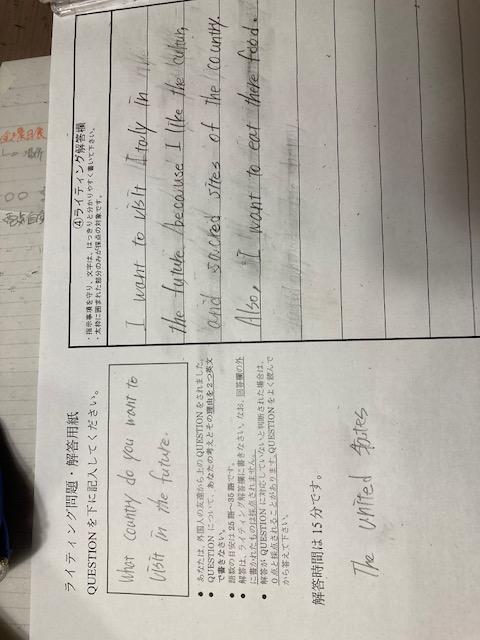 ライティング問題・解答用紙
QUESTION を下に記入してください。
What country do you want to
visit in the future.
● あなたは、外国人の友達から上の QUESTION をされました。
● QUESTION について、あなたの考えとその理由を2つ英文
で書きなさい。
● 語数の目安は 25 語〜35 語です。
● 解答は、ライティング解答欄に書きなさい。なお、回答欄の外
に書かれたものは採点されません。
● 解答が QUESTION に対応していないと判断された場合は、
0点と採点されることがあります。QUESTION をよく読んで
から答えて下さい。
解答時間は 15 分です。
The United States
④ライティング解答欄
・指示事項を守り、文字は、はっきりと分かりやすく書いて下さい。
・太枠に囲まれた部分のみが採点の対象です。
I want to visit Italy in
the future because I like the culture,
and sacred sites of the country.
Also, I want to eat there food.